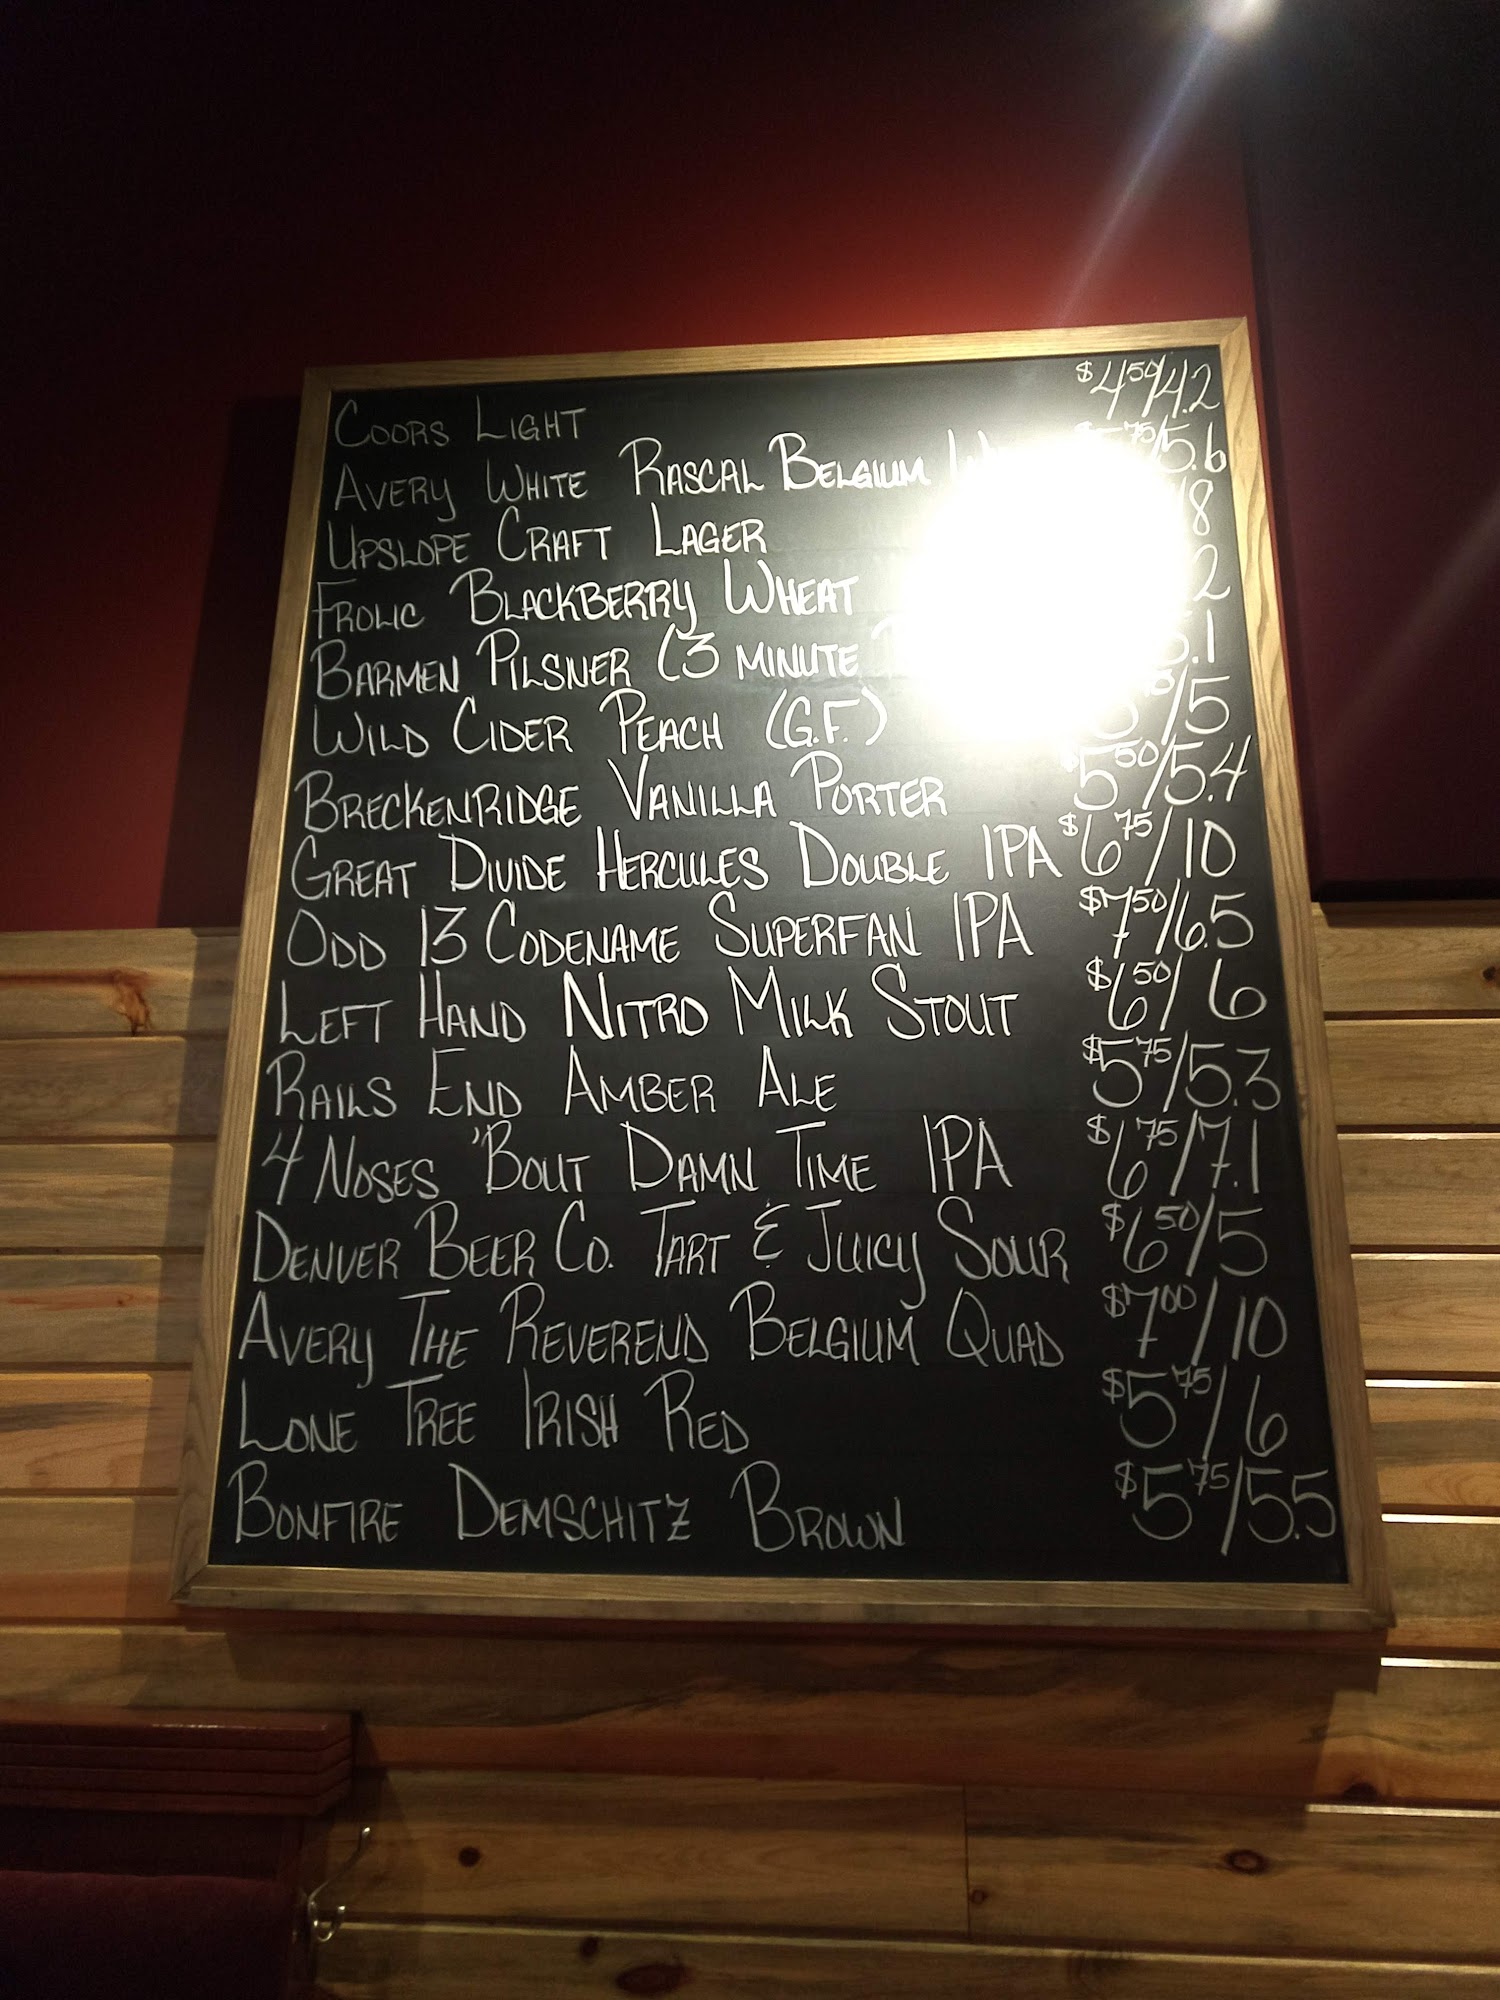 Coors Light $4.50/4.2
Avery White Rascal Belgium 75/5.6
Upslope Craft Lager
Frolic Blackberry Wheat
Barmen Pilsner (3 minute
Wild Cider Peach (G.F.) /5
Breckenridge Vanilla Porter $5.50/5.4
Great Divide Hercules Double IPA $6.75/10
Odd 13 Codename Superfan IPA $7.50/6.5
Left Hand Nitro Milk Stout $6.50/6
Rails End Amber Ale $5.75/5.3
4 Noses 'Bout Damn Time IPA $6.75/7.1
Denver Beer Co. Tart & Juicy Sour $6.50/5
Avery The Reverend Belgium Quad $7.00/10
Lone Tree Irish Red $5.75/6
Bonfire Demschitz Brown $5.75/5.5